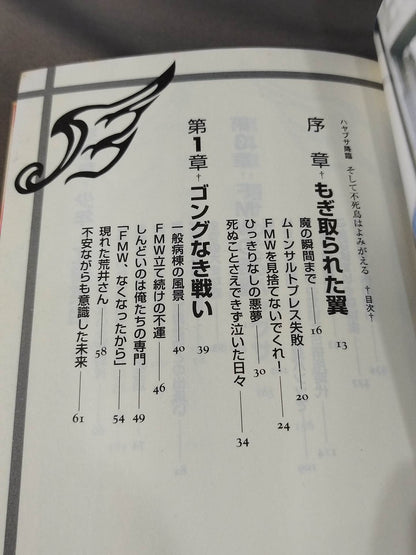 ハヤブサ降臨 そして不死鳥はよみがえる †目次†
序章† もぎ取られた翼 13
魔の瞬間まで 16
ムーンサルトプレス失敗 20
FMWを見捨てないでくれ! 24
ひっきりなしの悪夢 30
死ぬことさえできず泣いた日々 34
第1章† ゴングなき戦い 39
一般病棟の風景 40
FMW立て続けの不運 46
しんどいのは俺たちの専門 49
「FMW、なくなったから」 54
現れた荒井さん 58
不安ながらも意識した未来 61